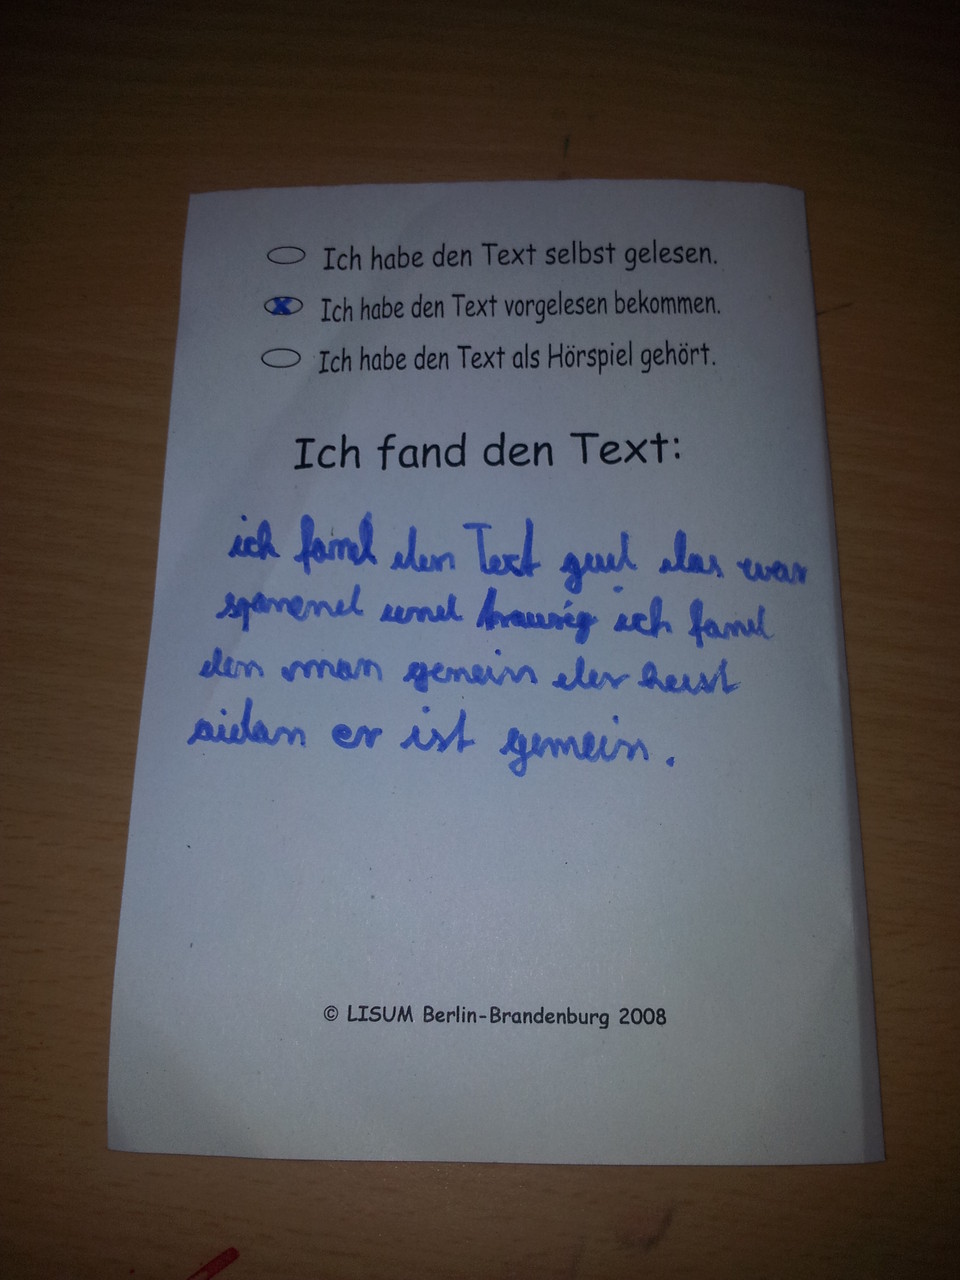 Ich habe den Text selbst gelesen.
x Ich habe den Text vorgelesen bekommen.
Ich habe den Text als Hörspiel gehört.
Ich fand den Text:
ich fand den Text gud das war
spanend und traurig ich fand
den man gemein der heist
aidan er ist gemein.
© LISUM Berlin-Brandenburg 2008